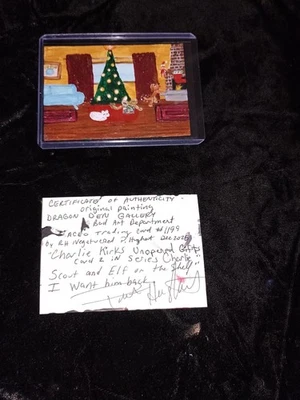 CERTIFICATE OF AUTHENTICITY
original painting
DRAGON DEN GALLERY
Bad Art Department
Trading card #1199
by RH
"Charlie Kirks Unopened Gift"
Card 2 in Series Charlie
Scout and Elf on the Shelf"
I want him back